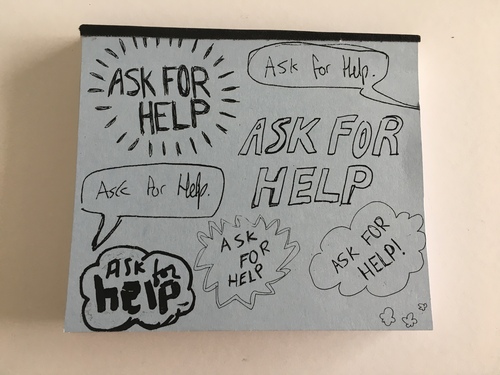 ASK FOR
HELP
Ask for Help.
ASK FOR
HELP
Ask for Help.
ASK
FOR
HELP
ASK FOR
HELP!
ASK for
help